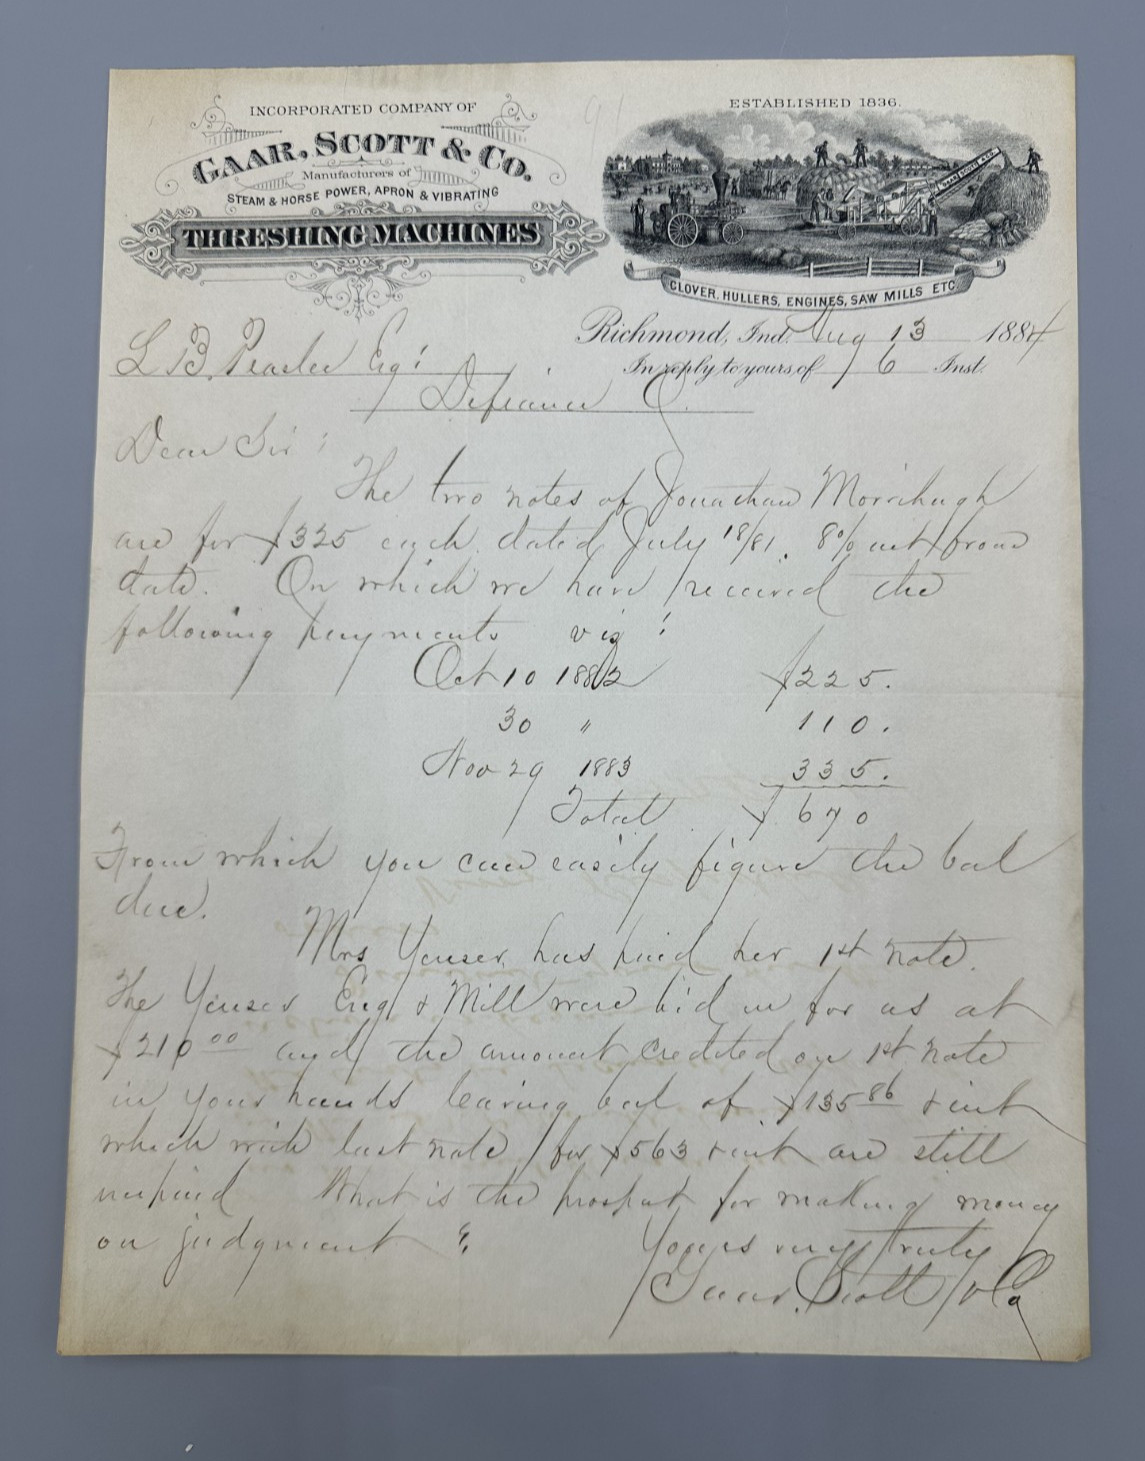 INCORPORATED COMPANY OF
GAAR, SCOTT & CO.
Manufacturers of
STEAM & HORSE POWER, APRON & VIBRATING
THRESHING MACHINES
ESTABLISHED 1836.
GAAR SCOTT & CO.
CLOVER HULLERS, ENGINES, SAW MILLS ETC
Richmond, Ind. Aug 13 1884
In reply to yours of 6 Inst.
L B. Peaslee Esq:
Defiance O.
Dear Sir:
The two notes of Jonathan
are for $325 each dated July 18/81. 8% int from
date. On which we have received the
following payments viz:
Oct 10 1882 $225.
30 " 110.
Nov 29 1883 335.
Total $670
From which you can easily figure the bal
due.
Mrs Yenser has paid her 1st note.
The Yenser Eng & Mill were bid in for us at
$210 00 and the amount credited on 1st note
in your hands leaving bal of $135 86 & int
which with last note for $563 & int are still
unpaid What is the prospect for making money
on judgment ?
Yours very truly
Gaar, Scott & Co